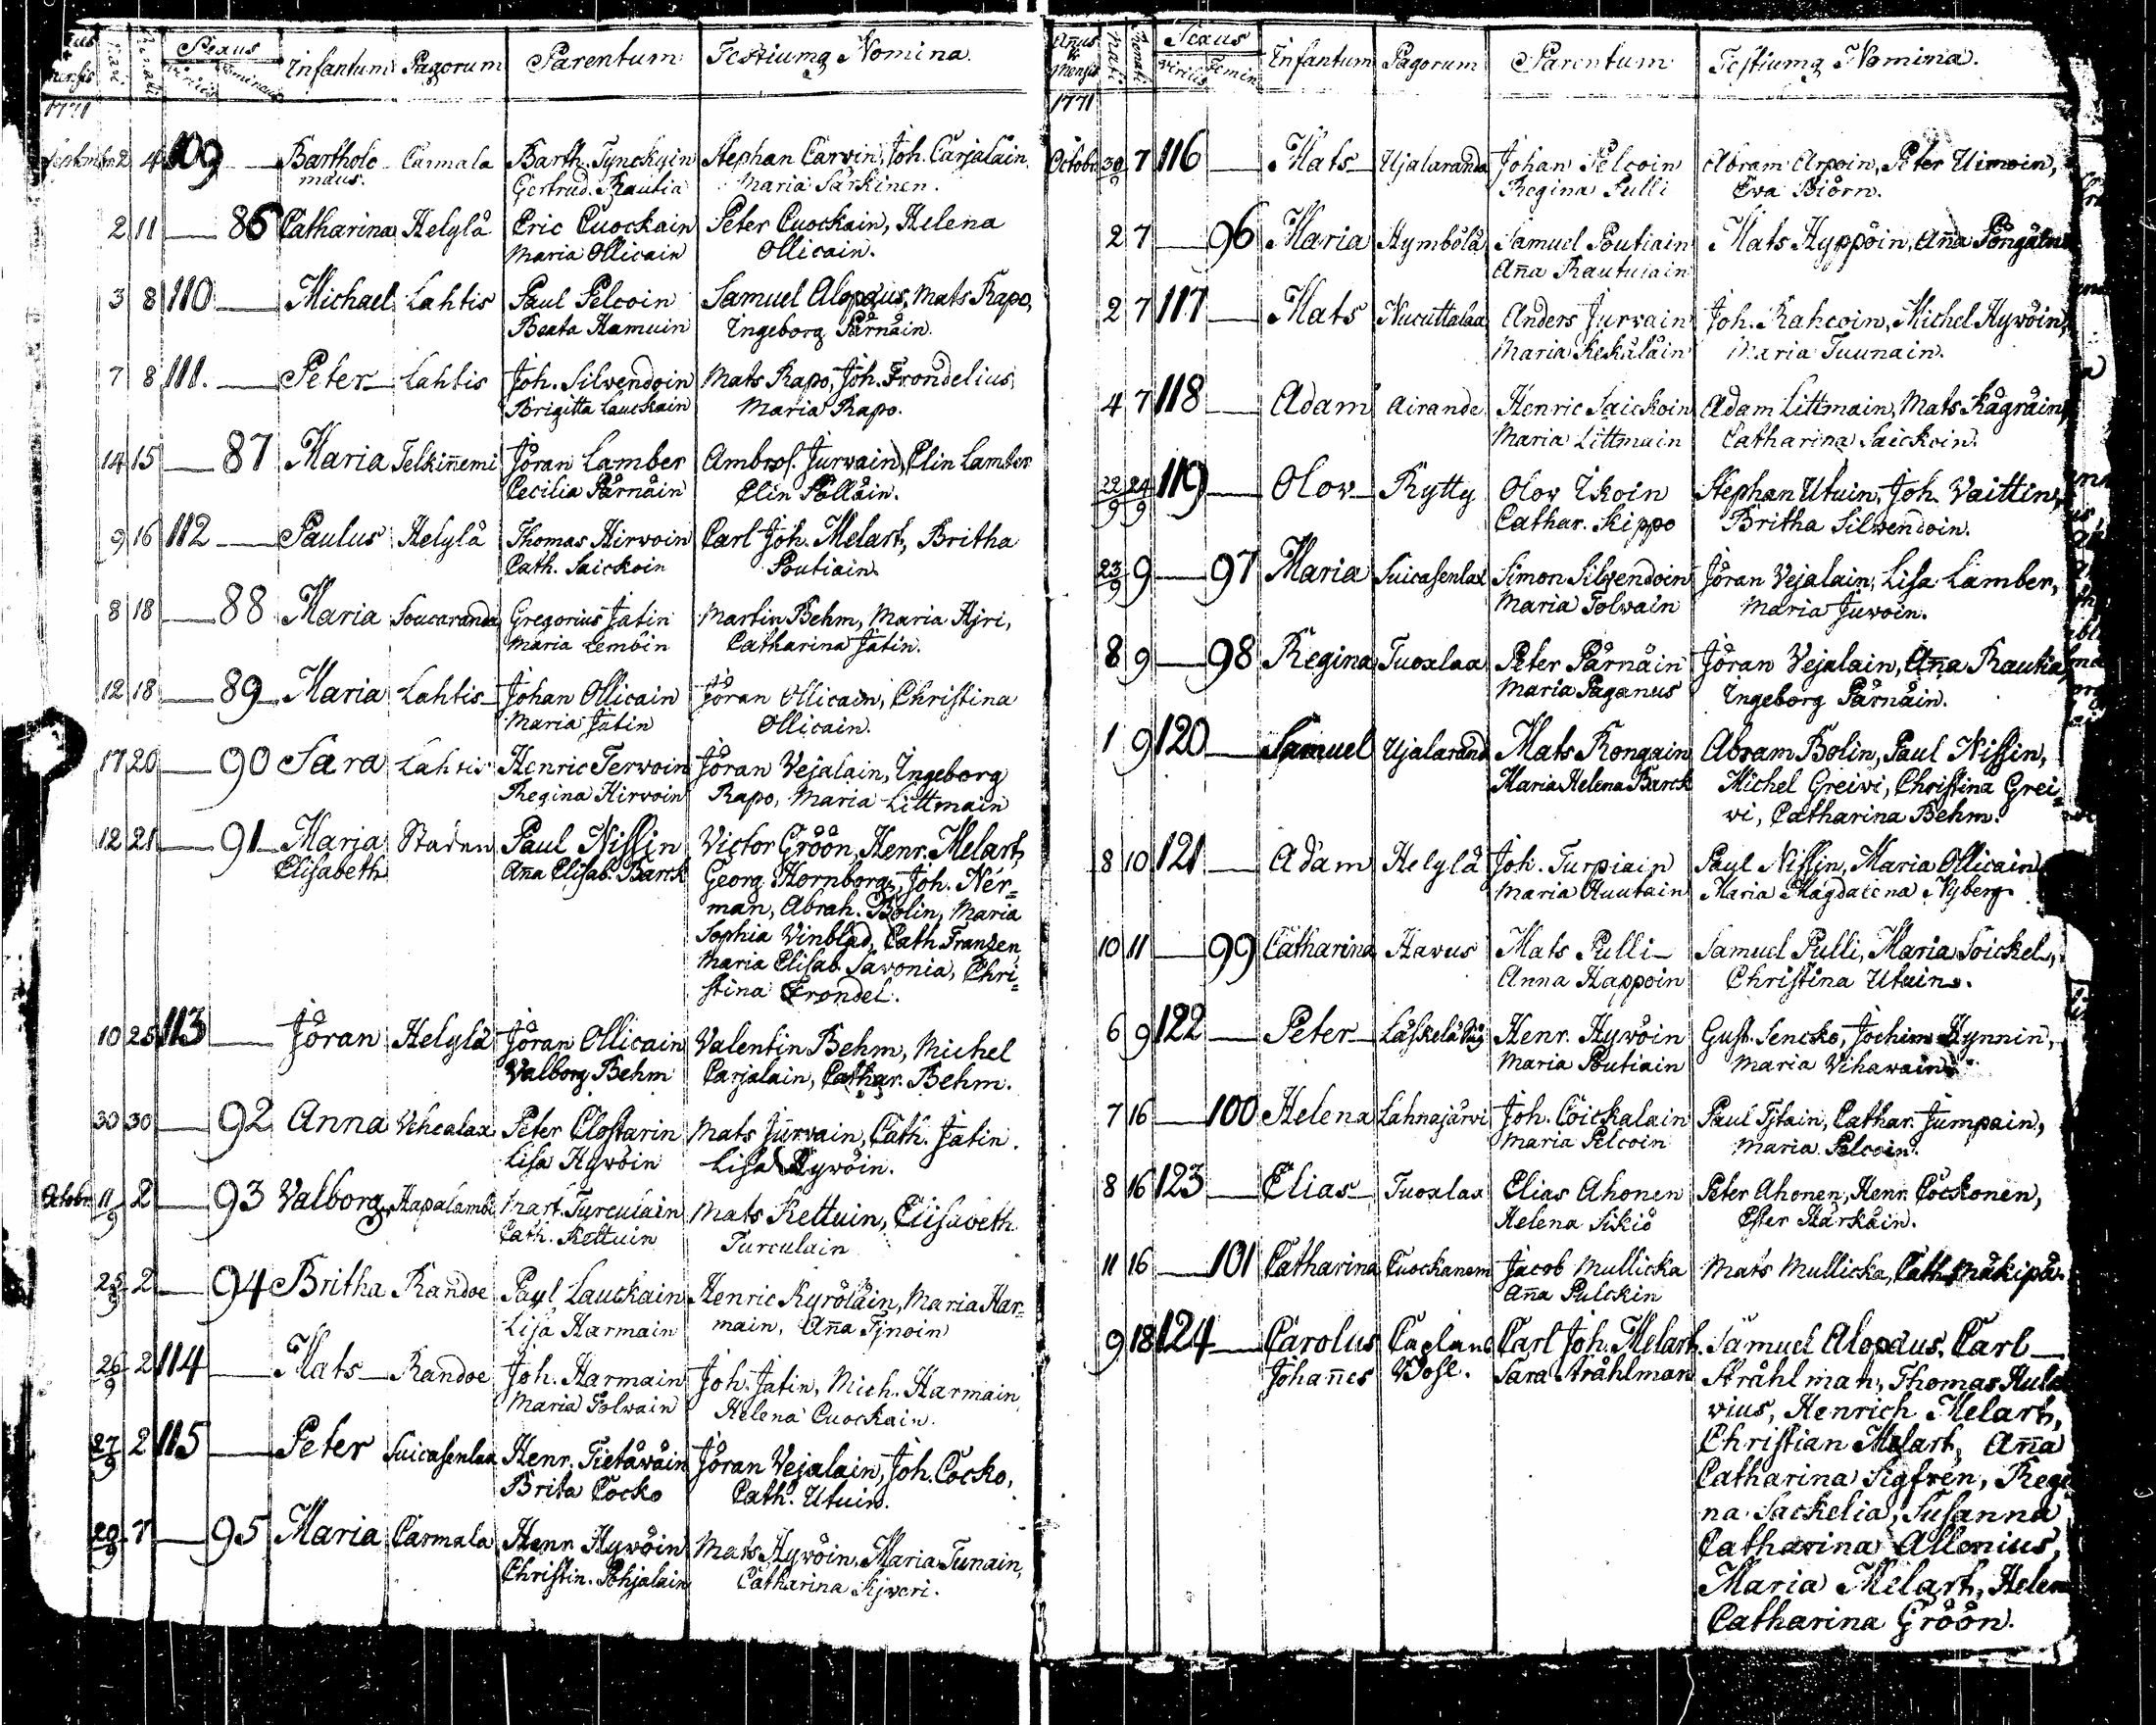 Sexus Infantum Pagorum Parentum Testiumq Nomina.
1771
September 2 4 109 Bartholo Carmala Barth. Tynckyin Stephan Carvin, Joh. Carjalain.
maus. Gertrud. Rautia Maria Särkinen.
2 11 86 Catharina Helylä Eric Cuockain Peter Cuockain, Helena
Maria Ollicain Ollicain.
3 8 110 Michael Lahtis Paul Pelcoin Samuel Alopæus, Mats Rapo,
Beata Hamuin Ingeborg Pärnäin.
7 8 111. Peter Lahtis Joh. Silvendoin Mats Rapo, Joh. Frondelius,
Brigitta Lauckain Maria Rapo.
14 15 87 Maria Telkiñemi Jöran Lamber Ambros. Jurvain, Elin Lamber
Cecilia Pärnäin Elin Pålläin.
9 16 112 Paulus Helylä Thomas Hirvoin Carl Joh. Melart, Britha
Cath. Saickoin Poutiain.
8 18 88 Maria Soucaranda Gregorius Jatin Martin Behm, Maria Hjri,
Maria Lemöin Catharina Jatin.
12 18 89 Maria Lahtis Johan Ollicain Jöran Ollicain, Christina
Maria Jatin Ollicain.
17 20 90 Sara Lahtis Henric Tervoin Jöran Vejalain, Ingeborg
Regina Hirvoin Rapo, Maria Littmain
12 21 91 Maria Staden Paul Nissin Victor Gröön, Henr. Melart,
Elisabeth Aña Elisab. Barck Georg Hornborg, Joh. Ner=
man, Abrah. Bolin, Maria
Sophia Vinblad, Cath Franzen,
Maria Elisab. Savonia, Chri=
stina Frondel.
10 25 113 Jöran Helylä Jöran Ollicain Valentin Behm, Michel
Valborg Behm Carjalain, Cathar. Behm.
30 30 92 Anna Vehcalax Peter Clostarin Mats Jurvain, Cath. Jatin.
Lisa Hyvöin Lisa Hyvöin.
Octobr 11/9 2 93 Valborg Hapalambi Mart. Turculain Mats Kettuin, Elisabeth
Cath. Kettuin Turculain
25/9 2 94 Britha Randoe Paul Lauckain Henric Kyröläin, Maria Har=
Lisa Harmain main, Aña Tjnoin
26/9 2 114 Mats Randoe Joh. Harmain Joh. Jatin, Mich. Harmain
Maria Tolvain Helena Cuockain.
27/9 2 115 Peter Suicasenlax Henr. Tietäväin Jöran Vejalain, Joh. Cocko,
Brita Cocko Cath. Utuin.
29/9 7 95 Maria Carmala Henr. Hyvöin Mats Hyvöin, Maria Tunain,
Christin. Pohjalain Catharina Kjveri.
Añus & Mensis Nati Renati Sexus Virilis Femin Infantum Pagorum Parentum Testiumq Nomina.
1771
Octobr 30/9 7 116 Mats Ujalaranda Johan Pelcoin Abram Arpoin, Peter Uimoin,
Regina Pulli Eva Biörn.
2 7 96 Maria Hymbölä Samuel Poutiain Mats Hyppöin, Aña
Aña Rautiain
2 7 117 Mats Nucuttalax Anders Jurvain Joh. Rahcoin, Michel Hyvöin,
Maria Kekäläin Maria Tuunain.
4 7 118 Adam Airande Henric Saickoin Adam Littmain, Mats Kägräin,
Maria Littmain Catharina Saickoin.
22/9 24/9 119 Olov Rytty Olov Ikoin Stephan Utuin, Joh. Vaittin,
Cathar. Skippo Britha Silvendoin.
23/9 9 97 Maria Suicasenlax Simon Silvendoin Jöran Vejalain, Lisa Lamber,
Maria Tolvain Maria Juvoin.
8 9 98 Regina Tuoxlax Peter Pärnäin Jöran Vejalain, Aña Rautia,
Maria Paganus Ingeborg Pärnäin.
1 9 120 Samuel Ujalarand Mats Rongain Abram Bolin, Paul Nissin,
Maria Helena Barck Michel Greivi, Christina Grei=
vi, Catharina Behm.
8 10 121 Adam Helylä Joh. Turpiain Paul Nissin, Maria Ollicain
Maria Huutain Maria Magdalena Nyberg
10 11 99 Catharina Havus Mats Pulli Samuel Pulli, Maria Soickel,
Anna Happoin Christina Utuin.
6 9 122 Peter Läskelä Henr. Hyvöin Gust. Sencko, Jochim Hynnin,
Maria Poutiain Maria Vihavain
7 16 100 Helena Lahnajärvi Joh. Coickalain Paul Tjtain, Cathar. Jumpain,
Maria Pelcoin Maria Pelcoin.
8 16 123 Elias Tuoxlax Elias Ahonen Peter Ahonen, Henr. Cockonen,
Helena Sikiö Ester Härkäin.
11 16 101 Catharina Cuockanem Jacob Mullicka Mats Mullicka, Cath. Mäkipä.
Aña Pulckin
9 18 124 Carolus Caplans Carl Joh. Melart Samuel Alopæus, Carl
Johañes Bosl. Sara Stråhlman Stråhlman, Thomas Hula
vius, Henrich Melart,
Christian Melart, Aña
Catharina Sigfren, Regi
na Sackelia, Susanna
Catharina Allenius,
Maria Melart, Helen
Catharina Gröön.